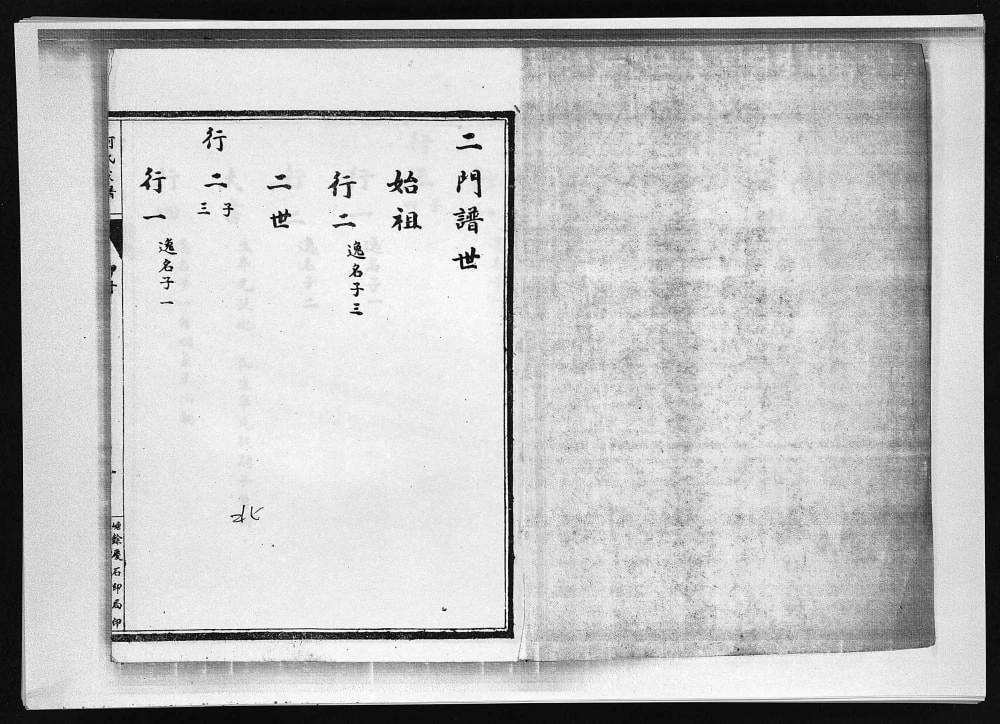 二門譜世
始祖
行二 逸名子三
二世
行二 子三
行一 逸名子一
餘慶石印局印